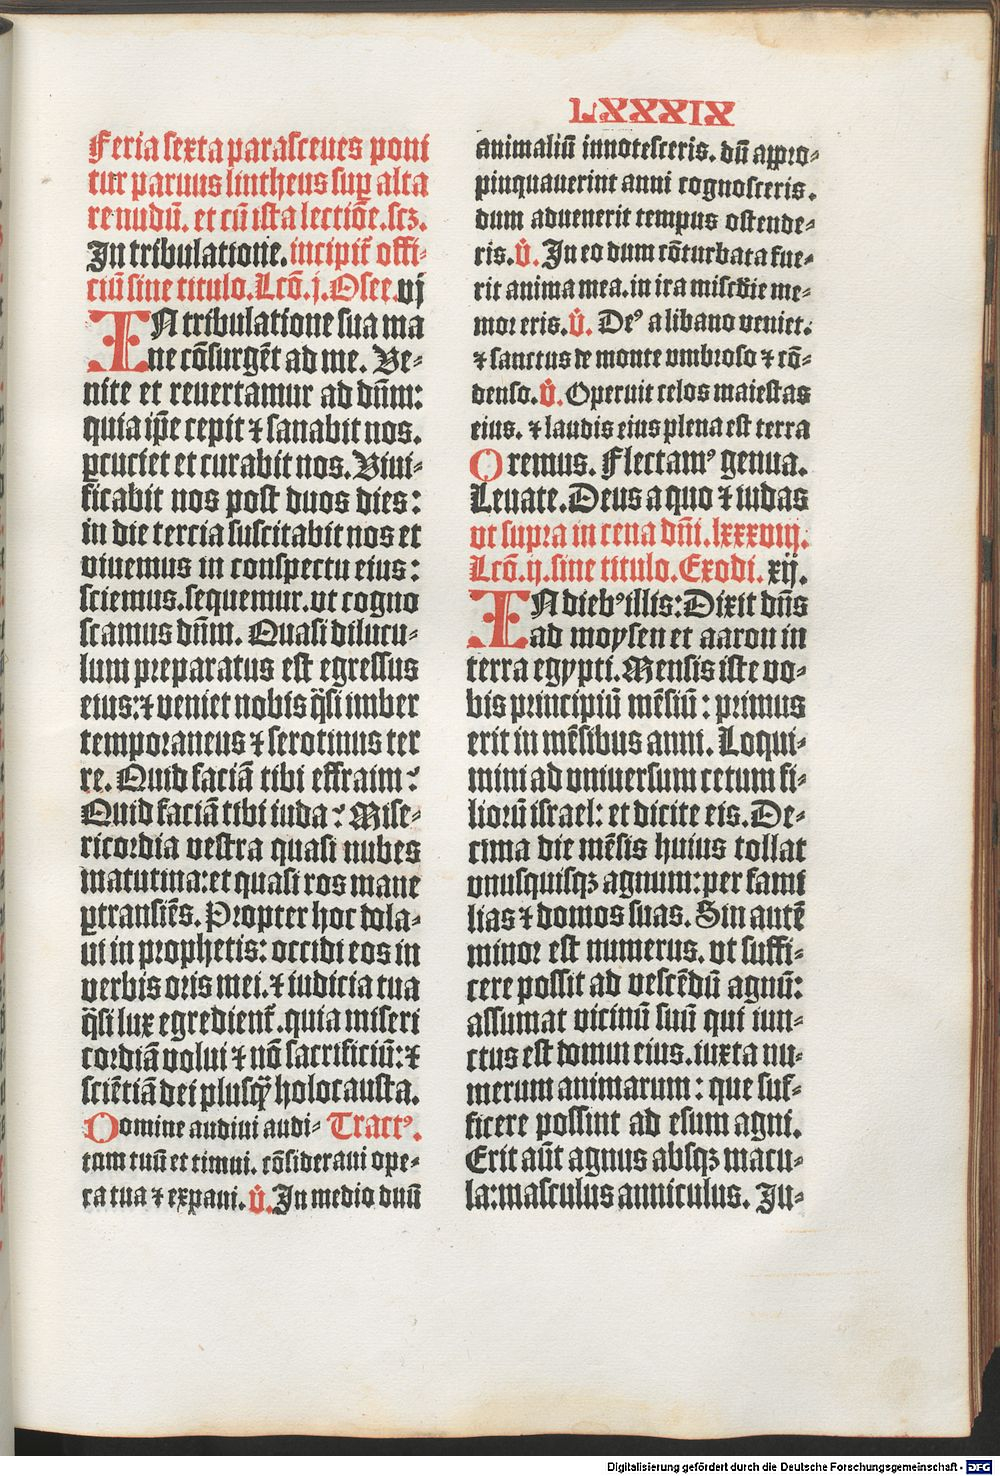 LXXXIX
Feria sexta parasceues poni
tur paruus lintheus sup̲ alta
re nudū. et cū ista lectiōe. scꝫ.
In tribulatione. incipit᷑ offi⸗
ciū sine titulo. Lcō. j. Osee. vj
IN tribulatione sua ma
ne cōsurgēt ad me. Ve⸗
nite et reuertamur ad dn̄m:
quia ip̄e cepit ⁊ sanabit nos.
ꝑcuciet et curabit nos. Viui⸗
ficabit nos post duos dies:
in die tercia suscitabit nos et
viuemus in conspectu eius:
sciemus. sequemur. vt cogno
scamus dn̄m. Quasi dilucu⸗
lum preparatus est egressus
eius: ⁊ veniet nobis q̄si imber
temporaneus ⁊ serotinus ter
re. Quid faciā tibi effraim?
Quid faciā tibi iuda? Mise⸗
ricordia vestra quasi nubes
matutina: et quasi ros mane
ꝑtransiēs. Propter hoc dola⸗
ui in prophetis: occidi eos in
verbis oris mei. ⁊ iudicia tua
q̄si lux egredient᷑. quia miseri
cordiā volui ⁊ nō sacrificiū: ⁊
sciētiā dei plusq̄ holocausta.
Domine audiui audi⸗ Tractꝰ.
tam tuū et timui. cōsideraui ope⸗
ra tua ⁊ expaui. V̊. In medio duū
animaliū innotesceris. dū appro⸗
pinquauerint anni cognosceris.
dum aduenerit tempus ostende⸗
ris. V̊. In eo dum cōturbata fue⸗
rit anima mea. in ira mīscd̄ie me⸗
mor eris. V̊. Deꝰ a libano veniet:
⁊ sanctus de monte vmbroso ⁊ cō⸗
denso. V̊. Operuit celos maiestas
eius. ⁊ laudis eius plena est terra
Oremus. Flectamꝰ genua.
Leuate. Deus a quo ⁊ iudas
vt supra in cena dn̄i. lxxxviij.
Lcō. ij. sine titulo. Exodi. xij.
IN diebꝰ illis: Dixit dn̄s
ad moysen et aaron in
terra egypti. Mensis iste vo⸗
bis principiū mēsiū: primus
erit in mēsibus anni. Loqui⸗
mini ad vniuersum cetum fi⸗
liorū israel: et dicite eis. De⸗
cima die mēsis huius tollat
vnusquisqꝫ agnum: per fami
lias ⁊ domos suas. Sin autē
minor est numerus. vt suffi⸗
cere possit ad vescēdū agnū:
assumat vicinū suū qui iun⸗
ctus est domui eius. iuxta nu⸗
merum animarum: que suf⸗
ficere possint ad esum agni.
Erit aūt agnus absqꝫ macu⸗
la: masculus anniculus. Ju⸗
Digitalisierung gefördert durch die Deutsche Forschungsgemeinschaft - DFG